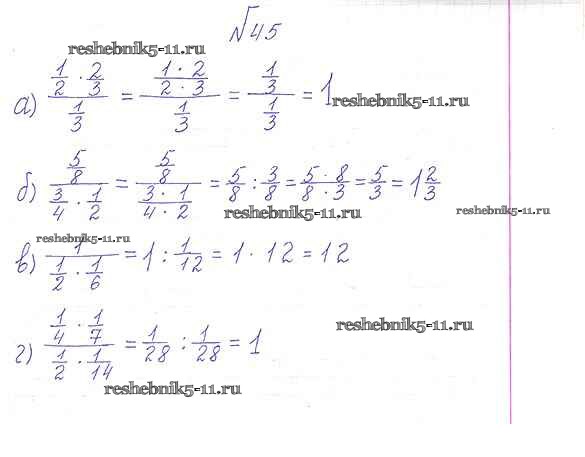 №45
reshebnik5-11.ru
а) (1/2 · 2/3)/(1/3) = ((1 · 2)/(2 · 3))/(1/3) = (1/3)/(1/3) = 1
reshebnik5-11.ru
б) (5/8)/(3/4 · 1/2) = (5/8)/((3 · 1)/(4 · 2)) = 5/8 : 3/8 = (5 · 8)/(8 · 3) = 5/3 = 1 2/3
reshebnik5-11.ru
reshebnik5-11.ru
reshebnik5-11.ru
в) 1/(1/2 · 1/6) = 1 : 1/12 = 1 · 12 = 12
reshebnik5-11.ru
г) (1/4 · 1/7)/(1/2 · 1/14) = 1/28 : 1/28 = 1
reshebnik5-11.ru